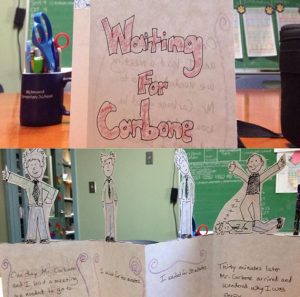 Richmond
Elementary School
Waiting
For
Carbone
One day Mr. Carbone
and I had a meeting
we needed to go to.
I waited for ten minutes.
I waited for 20 minutes.
Thirty minutes later
Mr. Carbone arrived and
wondered why I was